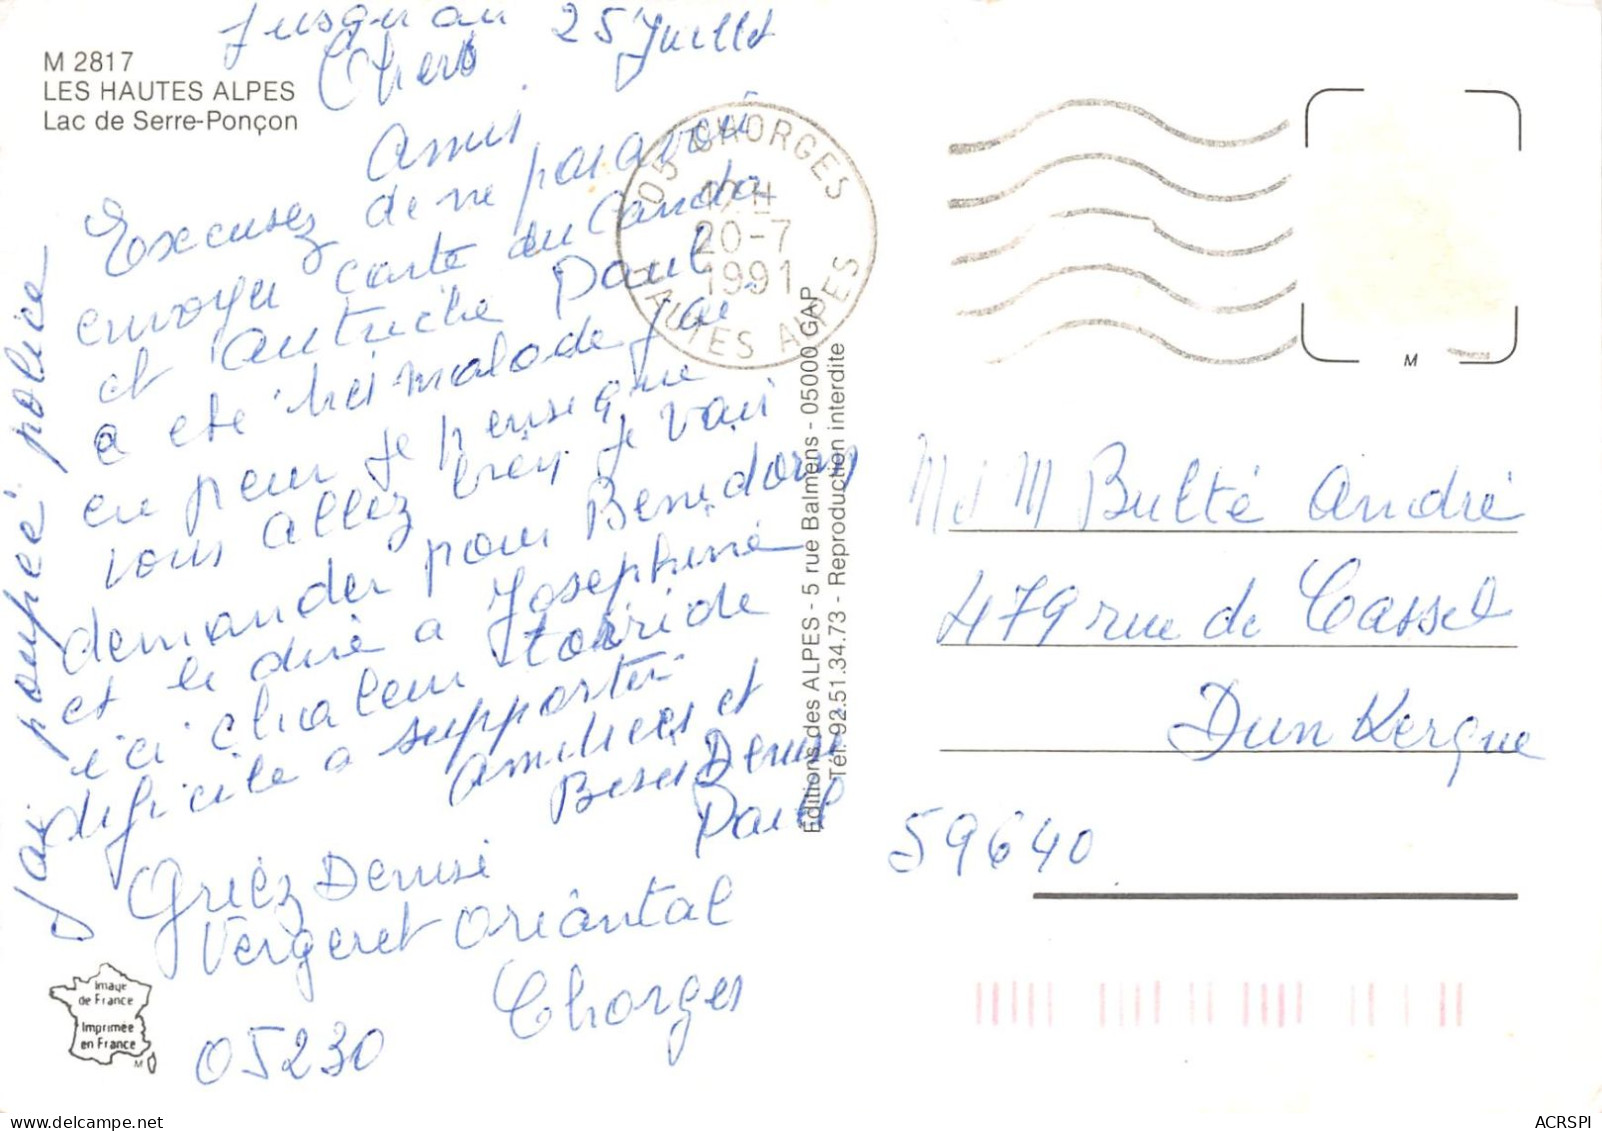 M 2817
LES HAUTES ALPES
Lac de Serre-Ponçon
Jusqu au 25 Juillet
Chers
Amis
Excusez de ne pas avoir
envoyer carte du Canada
et autriche Paul
a été très malade j'ai
eu peur je pense que
vous allez bien je vais
demander pour Benidorm
et le dire a Josephine
ici chaleur torride
dificile a supporter
amitiees et
Bises Denise
Paul
Griéz Denise
Vergeret Oriântal
Chorges
05230
J'ai poupée police
05 CHORGES
12 H
20-7
1991
HAUTES ALPES
Editions des ALPES - 5 rue Balmens - 05000 GAP
Tél. 92.51.34.73 - Reproduction interdite
M
M M Bulté André
479 rue de Cassel
Dunkerque
59640
Image
de France
Imprimée
en France
M
ACRSPI